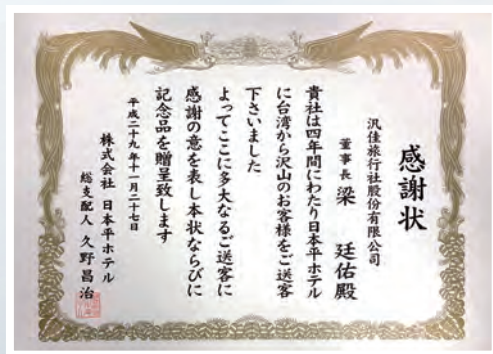 感謝状
汎佳旅行社股份有限公司
董事長 梁 廷佑殿
貴社は四年間にわたり日本平ホテル
に台湾から沢山のお客様をご送客
下さいました
よってここに多大なるご送客に
感謝の意を表し本状ならびに
記念品を贈呈致します
平成二十九年十一月二十七日
株式会社 日本平ホテル
総支配人 久野昌治